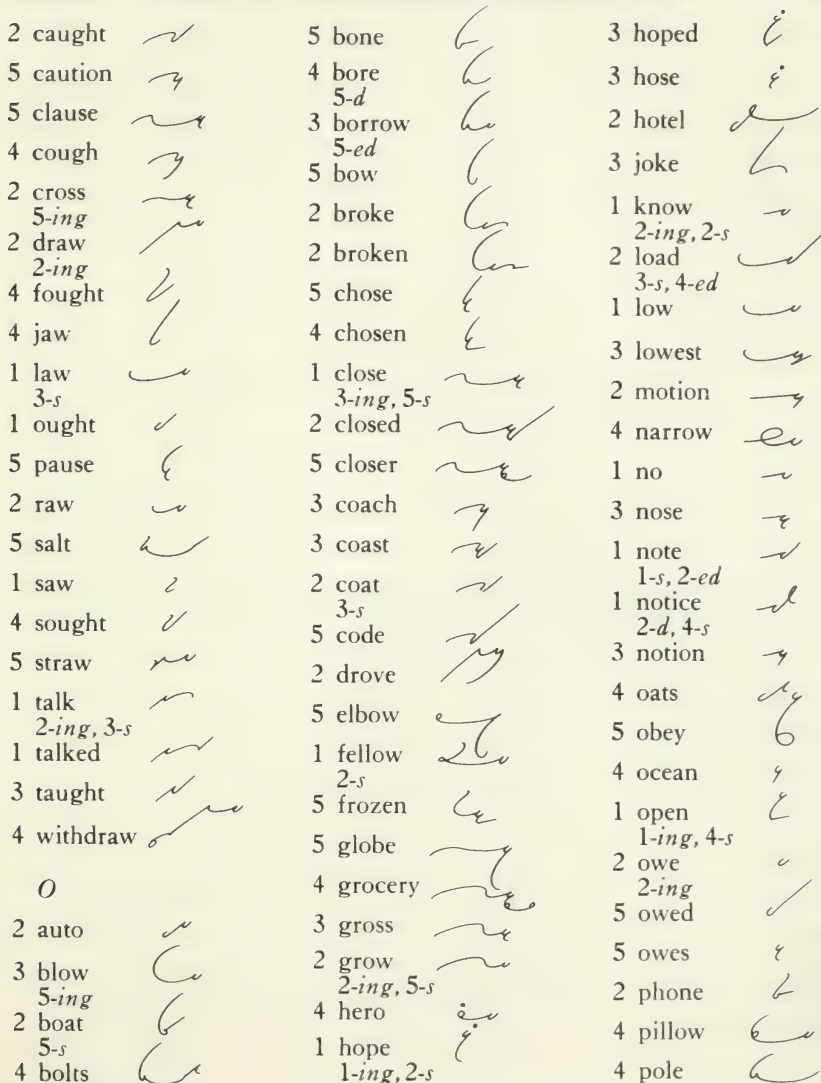 2 caught
5 caution
5 clause
4 cough
2 cross
5-ing
2 draw
2-ing
4 fought
4 jaw
1 law
3-s
1 ought
5 pause
2 raw
5 salt
1 saw
4 sought
5 straw
1 talk
2-ing, 3-s
1 talked
3 taught
4 withdraw
O
2 auto
3 blow
5-ing
2 boat
5-s
4 bolts
5 bone
4 bore
5-d
3 borrow
5-ed
5 bow
2 broke
2 broken
5 chose
4 chosen
1 close
3-ing, 5-s
2 closed
5 closer
3 coach
3 coast
2 coat
3-s
5 code
2 drove
5 elbow
1 fellow
2-s
5 frozen
5 globe
4 grocery
3 gross
2 grow
2-ing, 5-s
4 hero
1 hope
1-ing, 2-s
3 hoped
3 hose
2 hotel
3 joke
1 know
2-ing, 2-s
2 load
3-s, 4-ed
1 low
3 lowest
2 motion
4 narrow
1 no
3 nose
1 note
1-s, 2-ed
1 notice
2-d, 4-s
3 notion
4 oats
5 obey
4 ocean
1 open
1-ing, 4-s
2 owe
2-ing
5 owed
5 owes
2 phone
4 pillow
4 pole